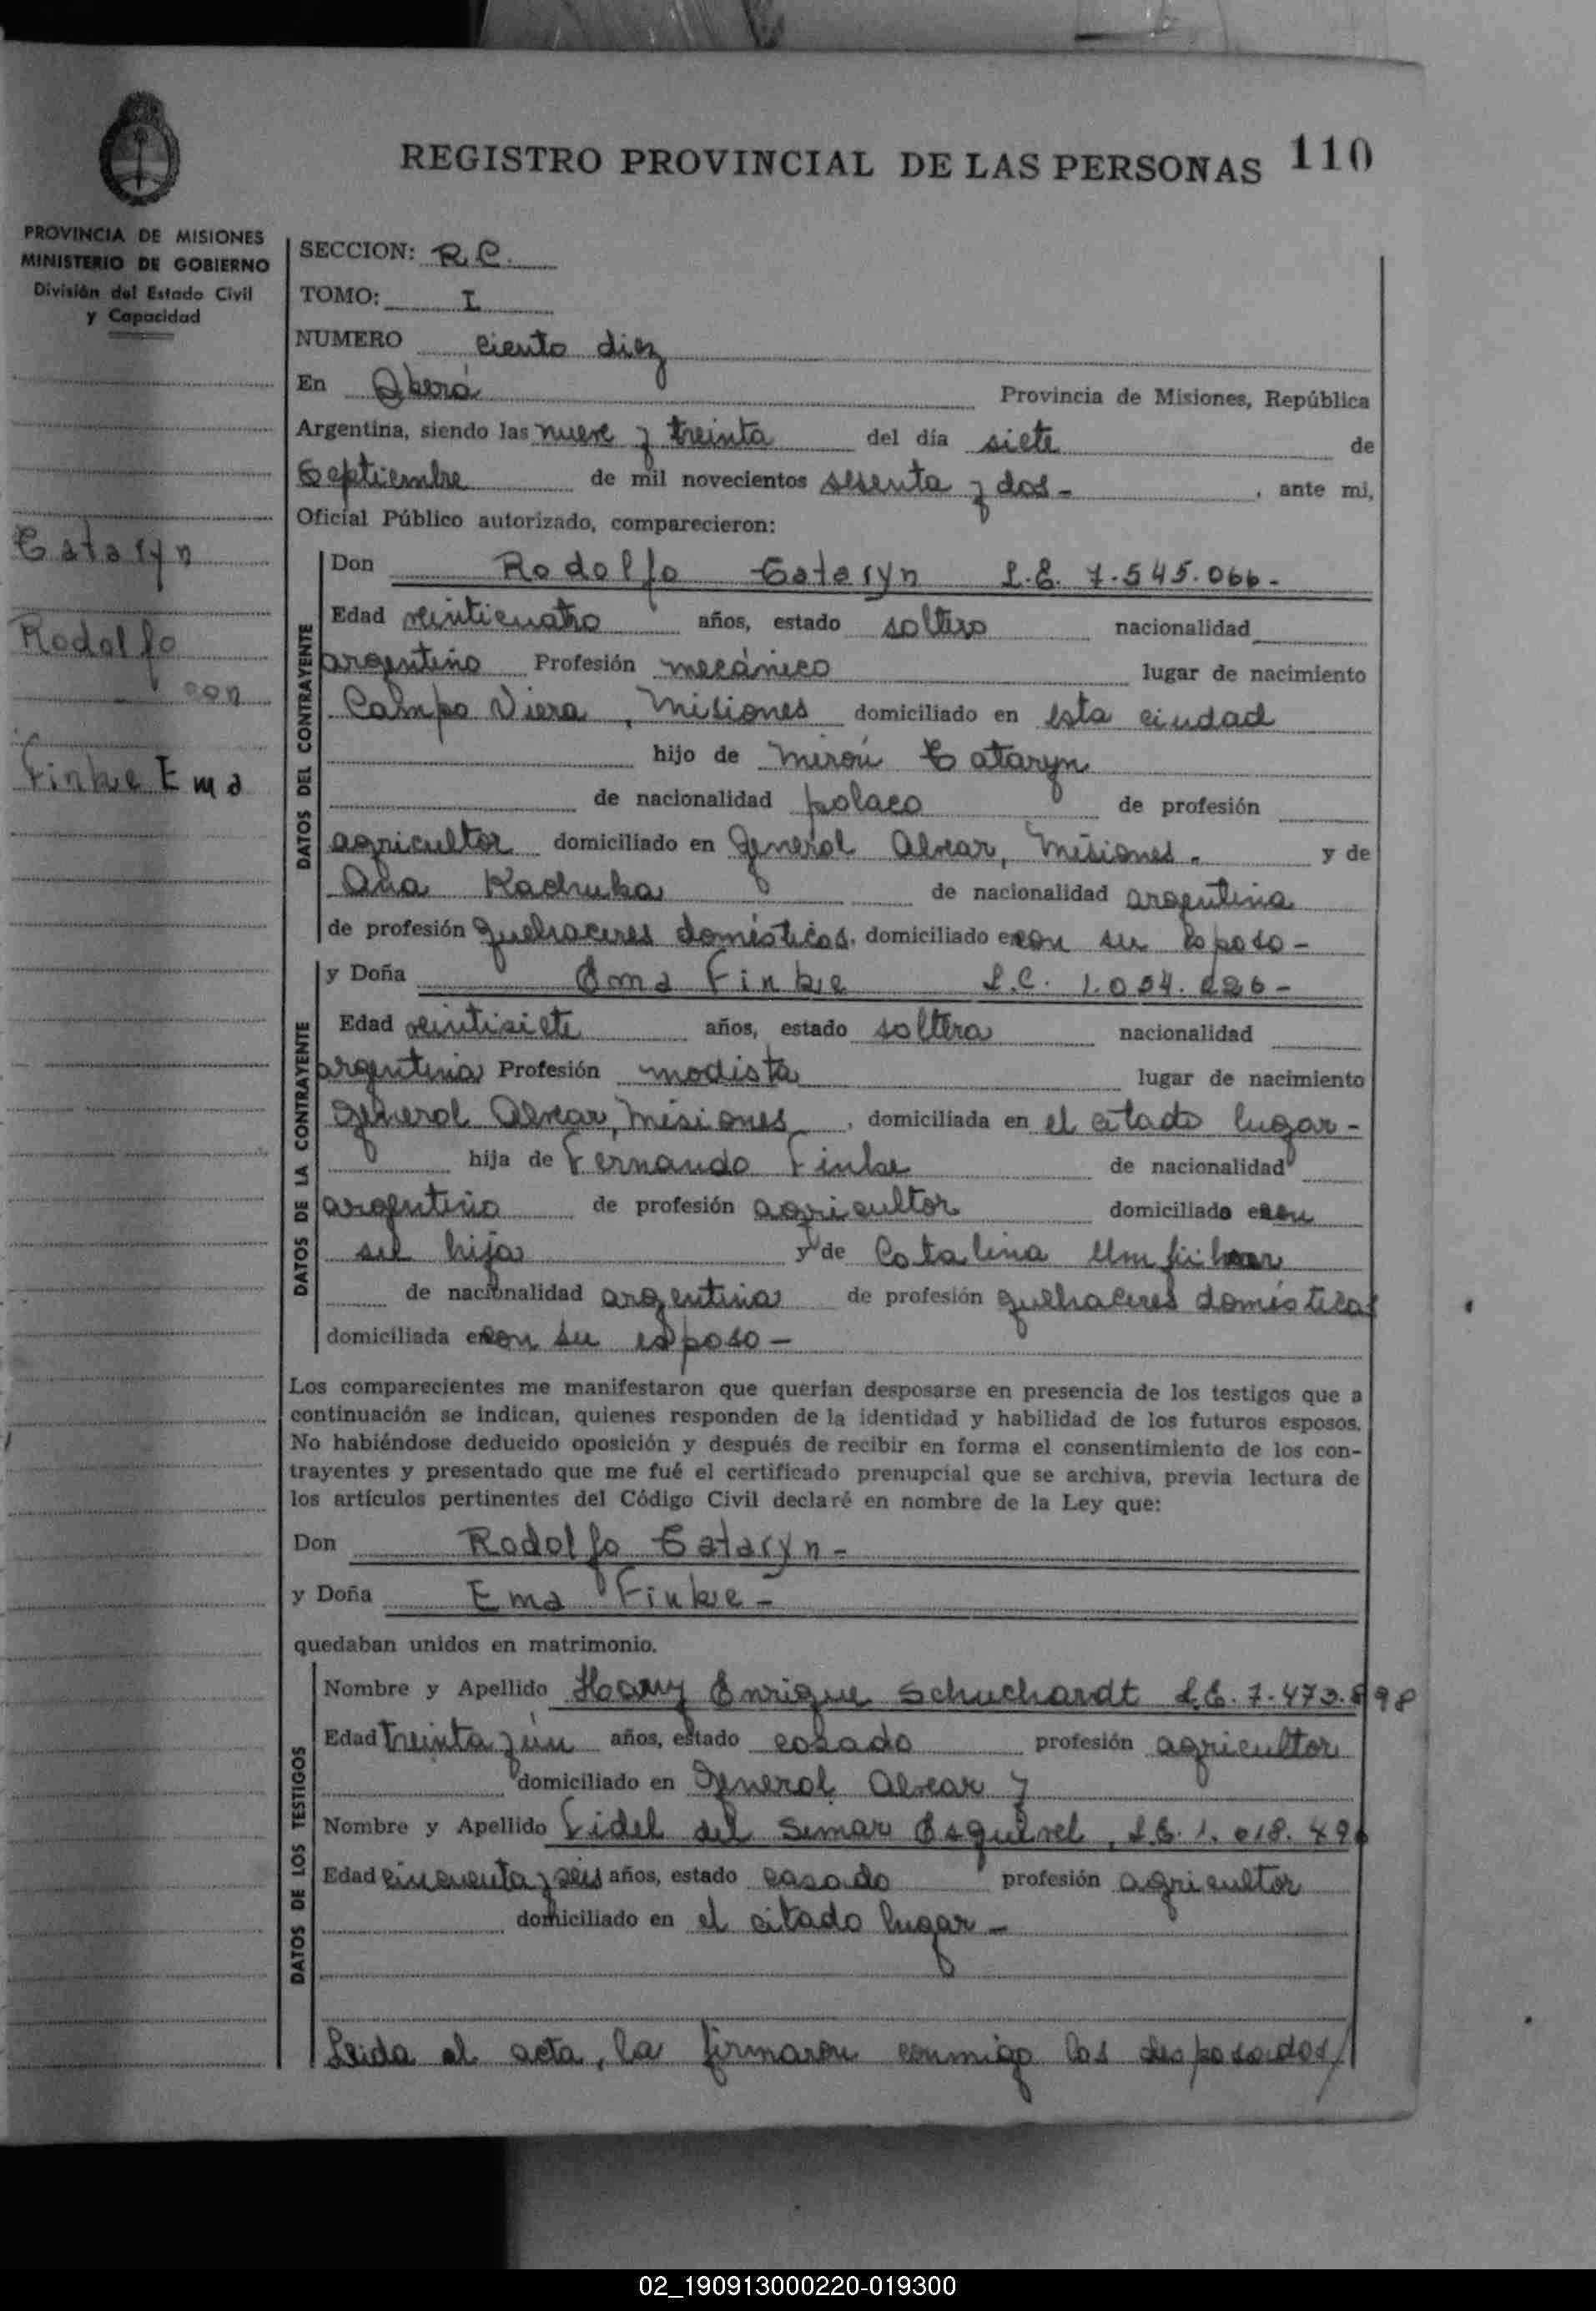 REGISTRO PROVINCIAL DE LAS PERSONAS 110
PROVINCIA DE MISIONES
MINISTERIO DE GOBIERNO
División del Estado Civil
y Capacidad
Cataryn
Rodolfo
con
Finke Ema
SECCION: R.C.
TOMO: I
NUMERO ciento diez
En Oberá Provincia de Misiones, República
Argentina, siendo las nueve y treinta del día siete de
Septiembre de mil novecientos sesenta y dos - , ante mi,
Oficial Público autorizado, comparecieron:
DATOS DEL CONTRAYENTE
Don Rodolfo Cataryn L.E. 7.545.066-
Edad veinticuatro años, estado soltero nacionalidad
argentino Profesión mecánico lugar de nacimiento
Campo Viera, Misiones domiciliado en esta ciudad
hijo de Mirón Cataryn
de nacionalidad polaco de profesión
agricultor domiciliado en General Alvear, Misiones - y de
Ana Kachuka de nacionalidad argentina
de profesión quehaceres domésticos, domiciliado con su esposo -
DATOS DE LA CONTRAYENTE
y Doña Ema Finke L.C. 1.054.226-
Edad veintisiete años, estado soltera nacionalidad
argentina Profesión modista lugar de nacimiento
General Alvear, Misiones, domiciliada en el citado lugar -
hija de Fernando Finke de nacionalidad
argentino de profesión agricultor domiciliado con
su hija y de Catalina
de nacionalidad argentina de profesión quehaceres domésticos
domiciliada con su esposo -
Los comparecientes me manifestaron que querían desposarse en presencia de los testigos que a
continuación se indican, quienes responden de la identidad y habilidad de los futuros esposos.
No habiéndose deducido oposición y después de recibir en forma el consentimiento de los con-
trayentes y presentado que me fué el certificado prenupcial que se archiva, previa lectura de
los artículos pertinentes del Código Civil declaré en nombre de la Ley que:
Don Rodolfo Cataryn -
y Doña Ema Finke -
quedaban unidos en matrimonio.
DATOS DE LOS TESTIGOS
Nombre y Apellido Harry Enrique Schuchardt L.E. 7.473.898
Edad treinta y un años, estado casado profesión agricultor
domiciliado en General Alvear y
Nombre y Apellido Fidel del Semar Esquivel, L.E. 1.018.
Edad cincuenta y seis años, estado casado profesión agricultor
domiciliado en el citado lugar -
Leida el acta, la firmaron conmigo los desposados/
02_190913000220-019300